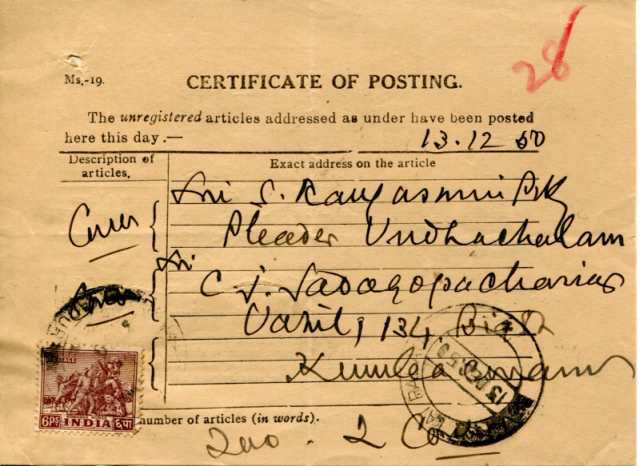 28
Ms.-19.
CERTIFICATE OF POSTING.
The unregistered articles addressed as under have been posted
here this day.— 13.12 50
Description of articles. Exact address on the article
Cover Sri S.
Pleader Vridhachalam
Cover Sri C. S. Sadagopachariar
Vakil, 134, Big St
Kumbakonam
13 DEC 50
6PS INDIA
number of articles (in words).
Two - 2 Co